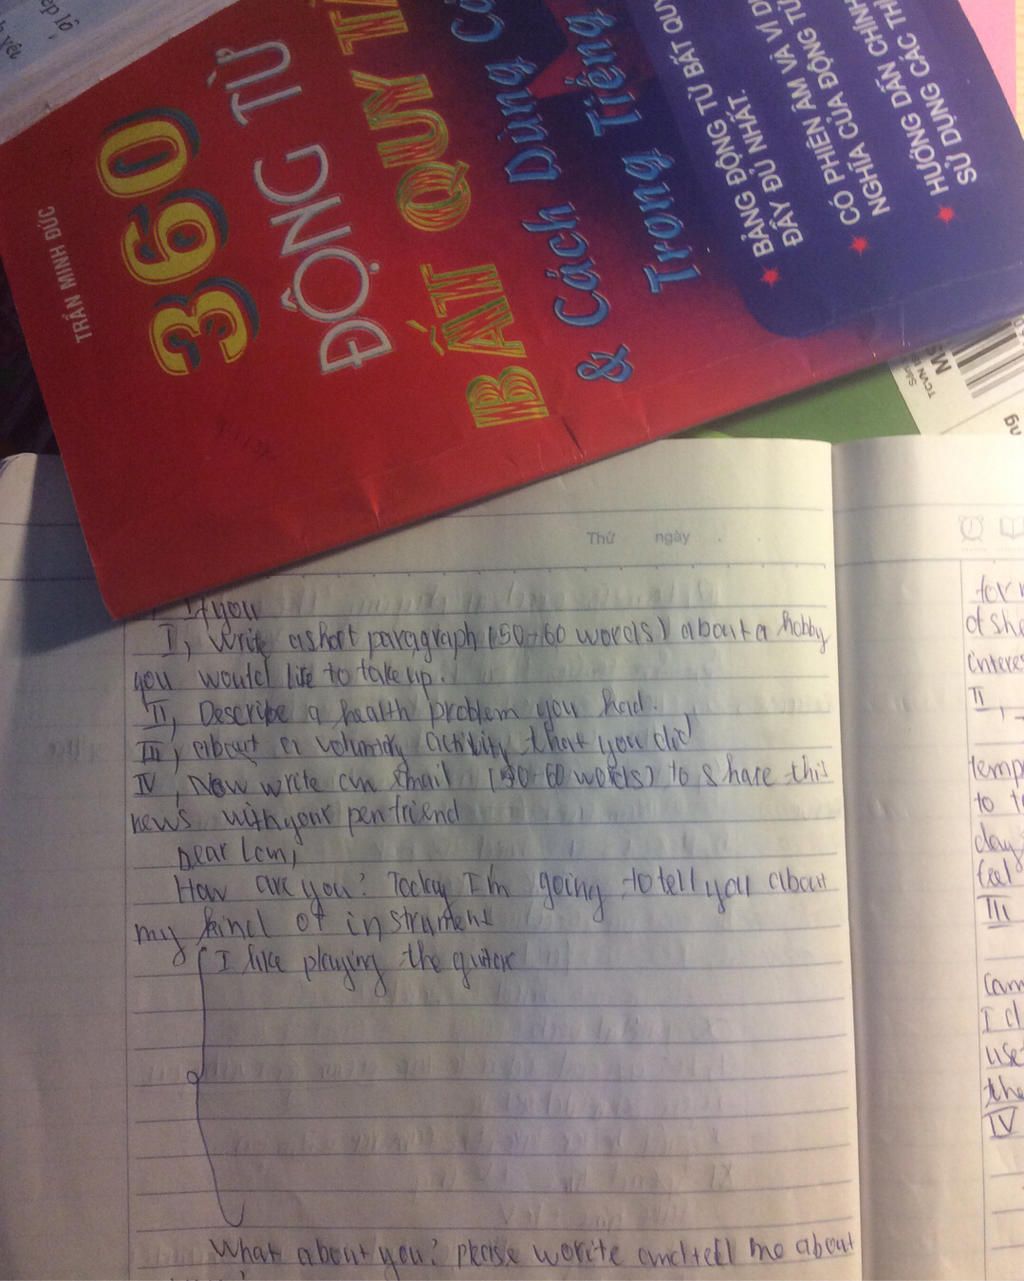 TRẦN MINH ĐỨC
360
ĐỘNG TỪ
BẤT QUY TẮ
& Cách Dùng Cá
Trong Tiếng
BẢNG ĐỘNG TỪ BẤT QUY
ĐẦY ĐỦ NHẤT.
CÓ PHIÊN ÂM VÀ VÍ D
NGHĨA CỦA ĐỘNG TỪ
HƯỚNG DẪN CHÍNH
SỬ DỤNG CÁC TH
Thứ ngày
If you
I, Write a short paragraph (50-60 words) about a hobby
you would like to take up.
II, Describe a health problem you had.
III, about a voluntary activity that you did
IV, Now write an email (50-60 words) to share this
news with your penfriend
Dear Lan,
How are you? Today I'm going to tell you about
my kind of instrument
I like playing the guitar
What about you? please worite and tell me about
of sha
interes
II,
temp
to t
day
feel
III
cam
I d
use
the
IV